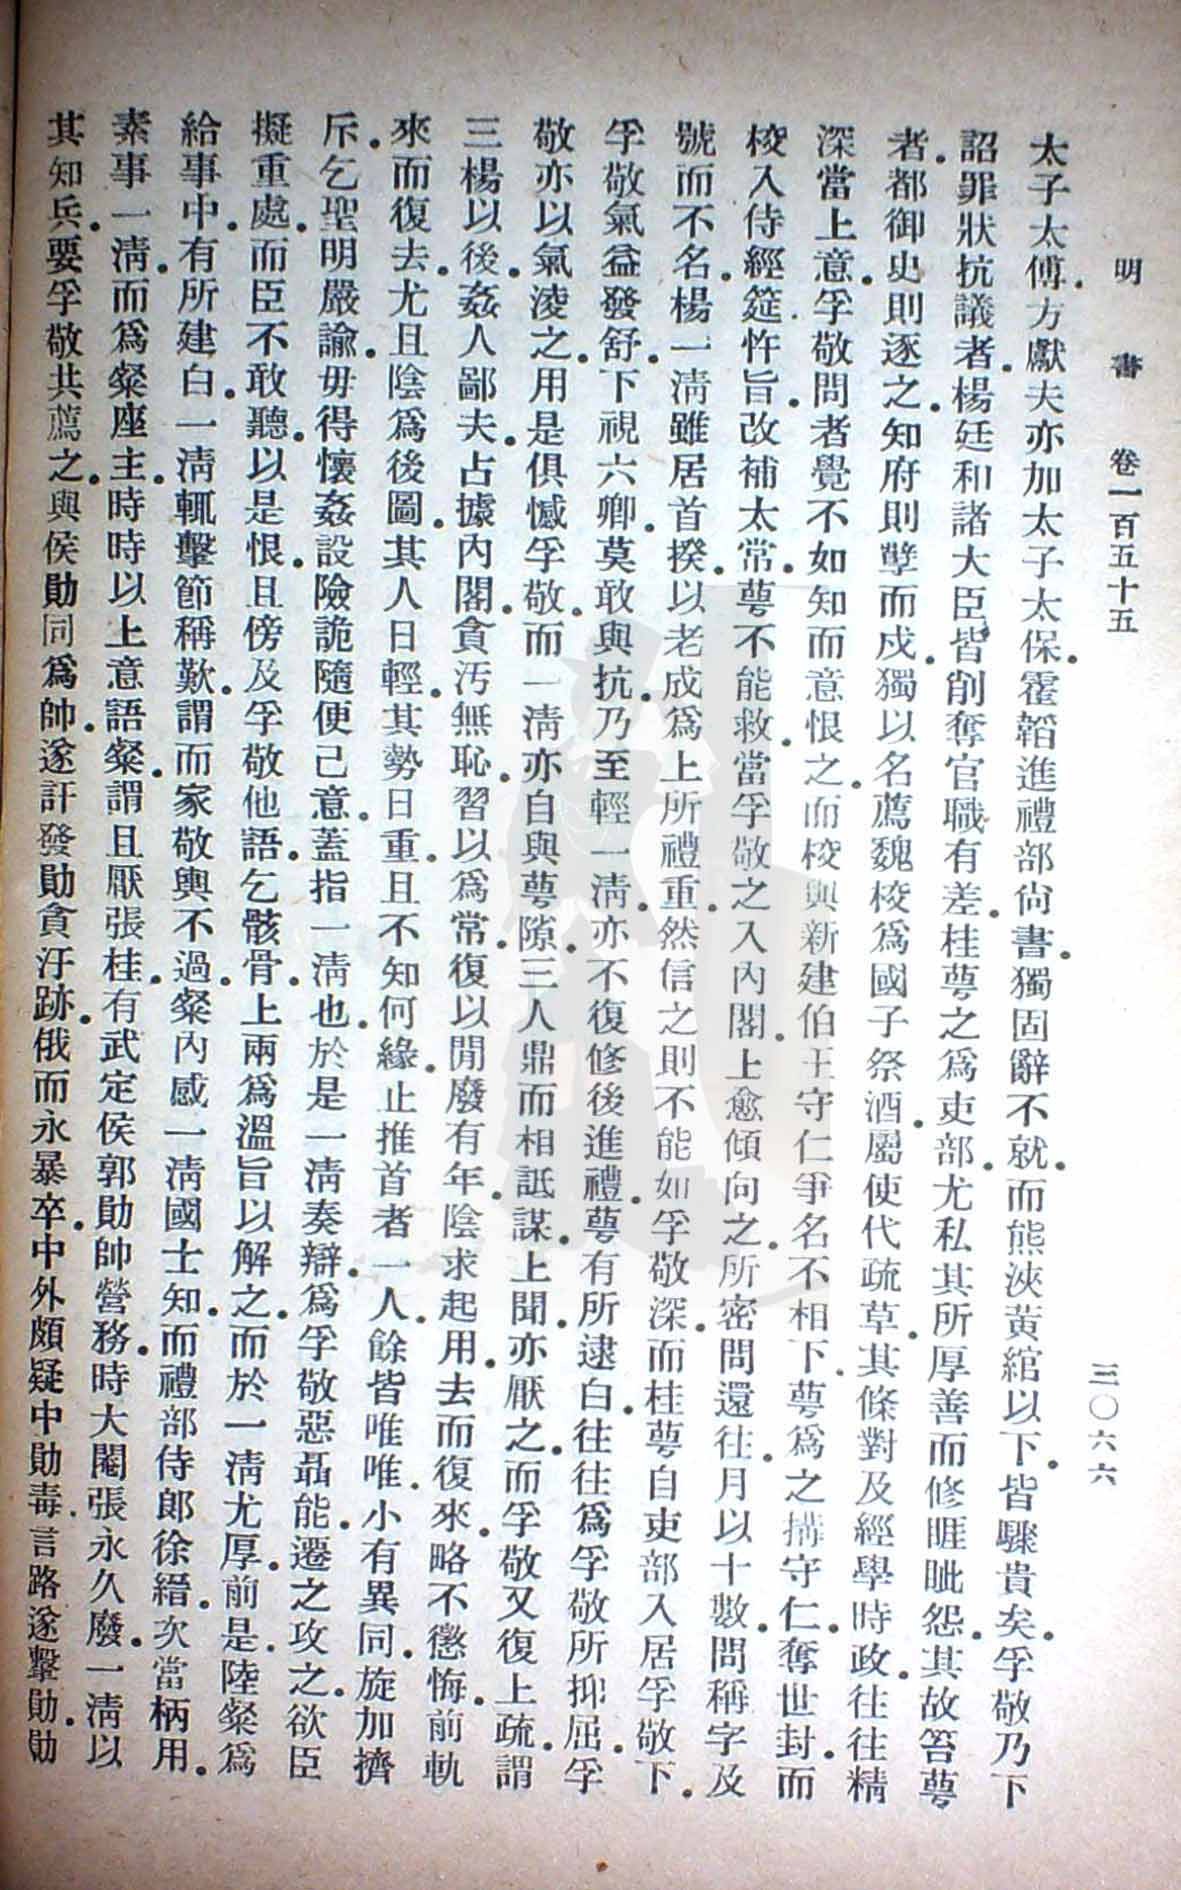 明書 卷一百五十五 三〇六六
太子太傅。方獻夫亦加太子太保。霍韜進禮部尙書。獨固辭不就。而熊浹黃綰以下。皆驟貴矣。孚敬乃下
詔罪狀抗議者。楊廷和諸大臣。皆削奪官職有差。桂萼之爲吏部。尤私其所厚善而修睚眦怨。其故笞萼
者。都御史則逐之。知府則孼而戍。獨以名薦魏校爲國子祭酒。屬使代疏草。其條對及經學時政。往往精
深當上意。孚敬問者覺不如。知而意恨之。而校與新建伯王守仁爭名不相下。萼爲之搆守仁。奪世封。而
校入侍經筵忤旨。改補太常。萼不能救。當孚敬之入內閣。上愈傾向之。所密問還往。月以十數。問稱字及
號而不名。楊一淸雖居首揆。以老成爲上所禮重。然信之則不能如孚敬深。而桂萼自吏部入居孚敬下。
孚敬氣益發舒。下視六卿。莫敢與抗。乃至輕一淸。亦不復修後進禮。萼有所逮白。往往爲孚敬所抑屈。孚
敬亦以氣淩之。用是俱憾孚敬。而一淸亦自與萼隙。三人鼎而相詆謀。上聞。亦厭之。而孚敬又復上疏。謂
三楊以後。姦人鄙夫。占據內閣。貪汚無恥。習以爲常。復以閒廢有年。陰求起用。去而復來。略不懲悔。前軌
來而復去。尤且陰爲後圖。其人日輕。其勢日重。且不知何緣。止推首者一人。餘皆唯唯。小有異同。旋加擠
斥。乞聖明嚴諭。毋得懷姦設險詭隨便己意。蓋指一淸也。於是一淸奏辯。爲孚敬惡聶能。遷之攻之。欲臣
擬重處。而臣不敢聽。以是恨。且傍及孚敬他語。乞骸骨。上兩爲溫旨以解之。而於一淸尤厚。前是。陸粲爲
給事中。有所建白。一淸輒擊節稱歎。謂而家敬輿不過。粲內感一淸國士知。而禮部侍郎徐縉。次當柄用。
素事一淸。而爲粲座主。時時以上意語粲。謂且厭張桂。有武定侯郭勛帥營務。時大閹張永久廢。一淸以
其知兵。要孚敬共薦之。與侯勛同爲帥。遂訐發勛貪汙跡。俄而永暴卒。中外頗疑中勛毒。言路遂擊勛。勛